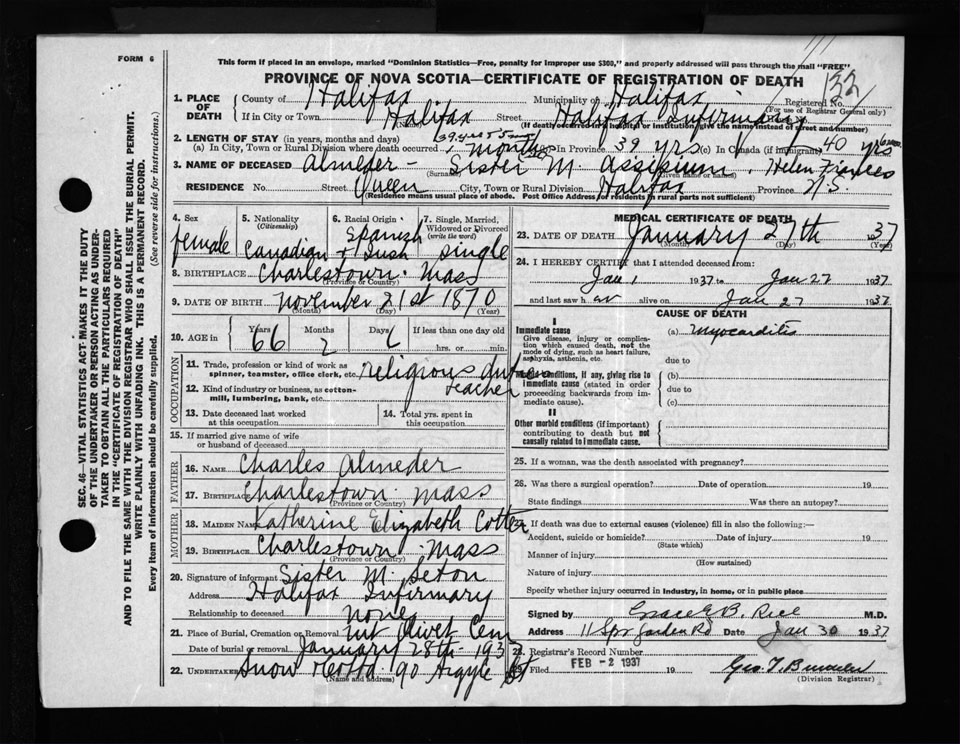 FORM 6
This form if placed in an envelope, marked "Dominion Statistics—Free, penalty for improper use $300," and properly addressed will pass through the mail "FREE"
PROVINCE OF NOVA SCOTIA—CERTIFICATE OF REGISTRATION OF DEATH
132
1. PLACE OF DEATH
County of Halifax Municipality of Halifax Registered No.
(For use of Registrar General only)
If in City or Town Halifax Street Halifax Infirmary
(Name) (If death occurred in a hospital or institution give the name instead of street and number)
2. LENGTH OF STAY (in years, months and days)
(a) In City, Town or Rural Division where death occurred (b) In Province 39 yrs (c) In Canada (if immigrant) 40 yrs
3. NAME OF DECEASED Almeder - Sister M. Assisium. Helen Frances
(Surname) (Given names)
RESIDENCE No. Street Queen City, Town or Rural Division Halifax Province N.S.
(Residence means usual place of abode. Post Office Address for residents in rural parts not sufficient)
4. Sex female
5. Nationality (Citizenship) Canadian
6. Racial Origin Spanish & Irish
7. Single, Married, Widowed or Divorced (write the word) Single
8. BIRTHPLACE Charlestown. Mass
(Province or Country)
9. DATE OF BIRTH November 21st 1870
(Month) (Day) (Year)
10. AGE in Years 66 Months 2 Days 6 If less than one day old hrs. or min.
OCCUPATION
11. Trade, profession or kind of work as spinner, teamster, office clerk, etc. religious duties
12. Kind of industry or business, as cotton-mill, lumbering, bank, etc. teacher
13. Date deceased last worked at this occupation
14. Total yrs. spent in this occupation
15. If married give name of wife or husband of deceased
FATHER
16. NAME Charles Almeder
17. BIRTHPLACE Charlestown. Mass
(Province or Country)
MOTHER
18. MAIDEN NAME Katherine Elizabeth Cotter
19. BIRTHPLACE Charlestown Mass
(Province or Country)
20. Signature of informant Sister M. Seton
Address Halifax Infirmary
Relationship to deceased None
21. Place of Burial, Cremation or Removal Mt Olivet Cem
Date of burial or removal January 28th 1937
22. UNDERTAKER Snow 90 Argyle St
(Name and address)
MEDICAL CERTIFICATE OF DEATH
23. DATE OF DEATH January 27th 37
(Month) (Day) (Year)
24. I HEREBY CERTIFY that I attended deceased from:
Jan 1 1937 to Jan 27 1937
and last saw h er alive on Jan 27 1937
CAUSE OF DEATH
I
Immediate cause
Give disease, injury or complication which caused death, not the mode of dying, such as heart failure, asphyxia, asthenia, etc.
(a) Myocarditis
due to
Morbid conditions, if any, giving rise to immediate cause (stated in order proceeding backwards from immediate cause).
(b)
due to
(c)
II
Other morbid conditions (if important) contributing to death but not causally related to immediate cause.
25. If a woman, was the death associated with pregnancy?
26. Was there a surgical operation? Date of operation 19
State findings Was there an autopsy?
If death was due to external causes (violence) fill in also the following:—
Accident, suicide or homicide? Date of injury 19
(State which)
Manner of injury
(How sustained)
Nature of injury
Specify whether injury occurred in industry, in home, or in public place
Signed by Grace E B. Rice M.D.
Address 11 Spr Garden Rd Date Jan 30 1937
28. Registrar's Record Number
Filed FEB - 2 1937 19
(Division Registrar)
SEC. 46—VITAL STATISTICS ACT MAKES IT THE DUTY OF THE UNDERTAKER OR PERSON ACTING AS UNDERTAKER TO OBTAIN ALL THE PARTICULARS REQUIRED IN THE "CERTIFICATE OF REGISTRATION OF DEATH" AND TO FILE THE SAME WITH THE DIVISION REGISTRAR WHO SHALL ISSUE THE BURIAL PERMIT.
WRITE PLAINLY WITH UNFADING INK. THIS IS A PERMANENT RECORD.
Every item of information should be carefully supplied. (See reverse side for instructions.)